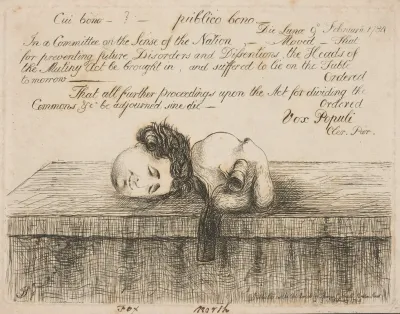 Cui bono — ? — publico bono
Die Lunæ 9° February 1784
In a Committee on the Sense of the Nation — Moved — That
for preventing future Disorders and Dissentions, the Heads of
the Mutiny Act be brought in, and suffered to lie on the Table
tomorrow — Ordered
That all further proceedings upon the Act for dividing the
Commons &c be adjourned, sine die — Ordered
Vox Populi
Cler. Par.
Fox North